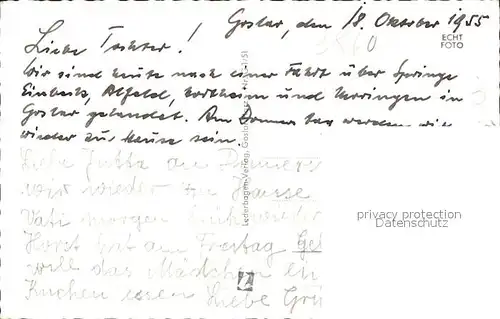 Goslar, den 18. Oktober 1955
Liebe Tochter!
ECHT
FOTO
Wir sind heute nach einer Fahrt über Springe
Einbeck, Alfeld, Northeim und Moringen in
Goslar gelandet. Am Donnerstag werden wir
wieder zu Hause sein.
Liebe Jutta am Donners
wir wieder zu Hause
Vati morgen
Horst hat am Freitag Ge
will das Mädchen
Kuchen essen Liebe Grü
privacy protection
Datenschutz
Lederbogen-Verlag, Goslar